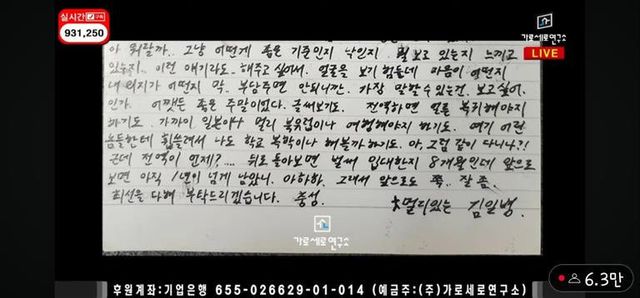 실시간 구독
931,250
가로세로연구소
LIVE
아 뭐랄까.. 그냥 어떻게 좋은 기준인지 낙인지 뭘 보고 있는지 느끼고
있는지.. 이런 얘기라도 해주고 싶어서. 얼굴을 보기 힘들네 마음이 어떤지
내 위치가 어떤지 막. 부담주면 안되니깐. 가장 말할 수 있는건. 보고싶어.
인가. 어쨌든 좋은 주말이었다. 글써보기도. 전역하면 얼른 복귀해야지
하기도. 가까이 일본이나 멀리 북유럽이나 여행해야지 하기도. 여기 어린
놈들한테 휩쓸려서 나도 학교 복학이나 해볼까 하기도. 아, 그럼 같이 다니나?!
근데 전역이 언제?.... 뒤로 돌아보면 벌써 입대한지 8개월인데 앞으로
보면 아직 1년이 넘게 남았니. 아하하. 그래서 앞으로도 쭉.. 잘 좀.
최선을 다해 부탁드리겠습니다. 충성.
멀리있는 김일병.
가로세로연구소
후원계좌:기업은행 655-026629-01-014 (예금주:(주)가로세로연구소)
6.3만